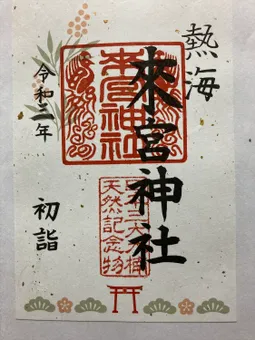 熱海
來宮神社
來宮神社
日本三大樟
天然記念物
令和二年
初詣